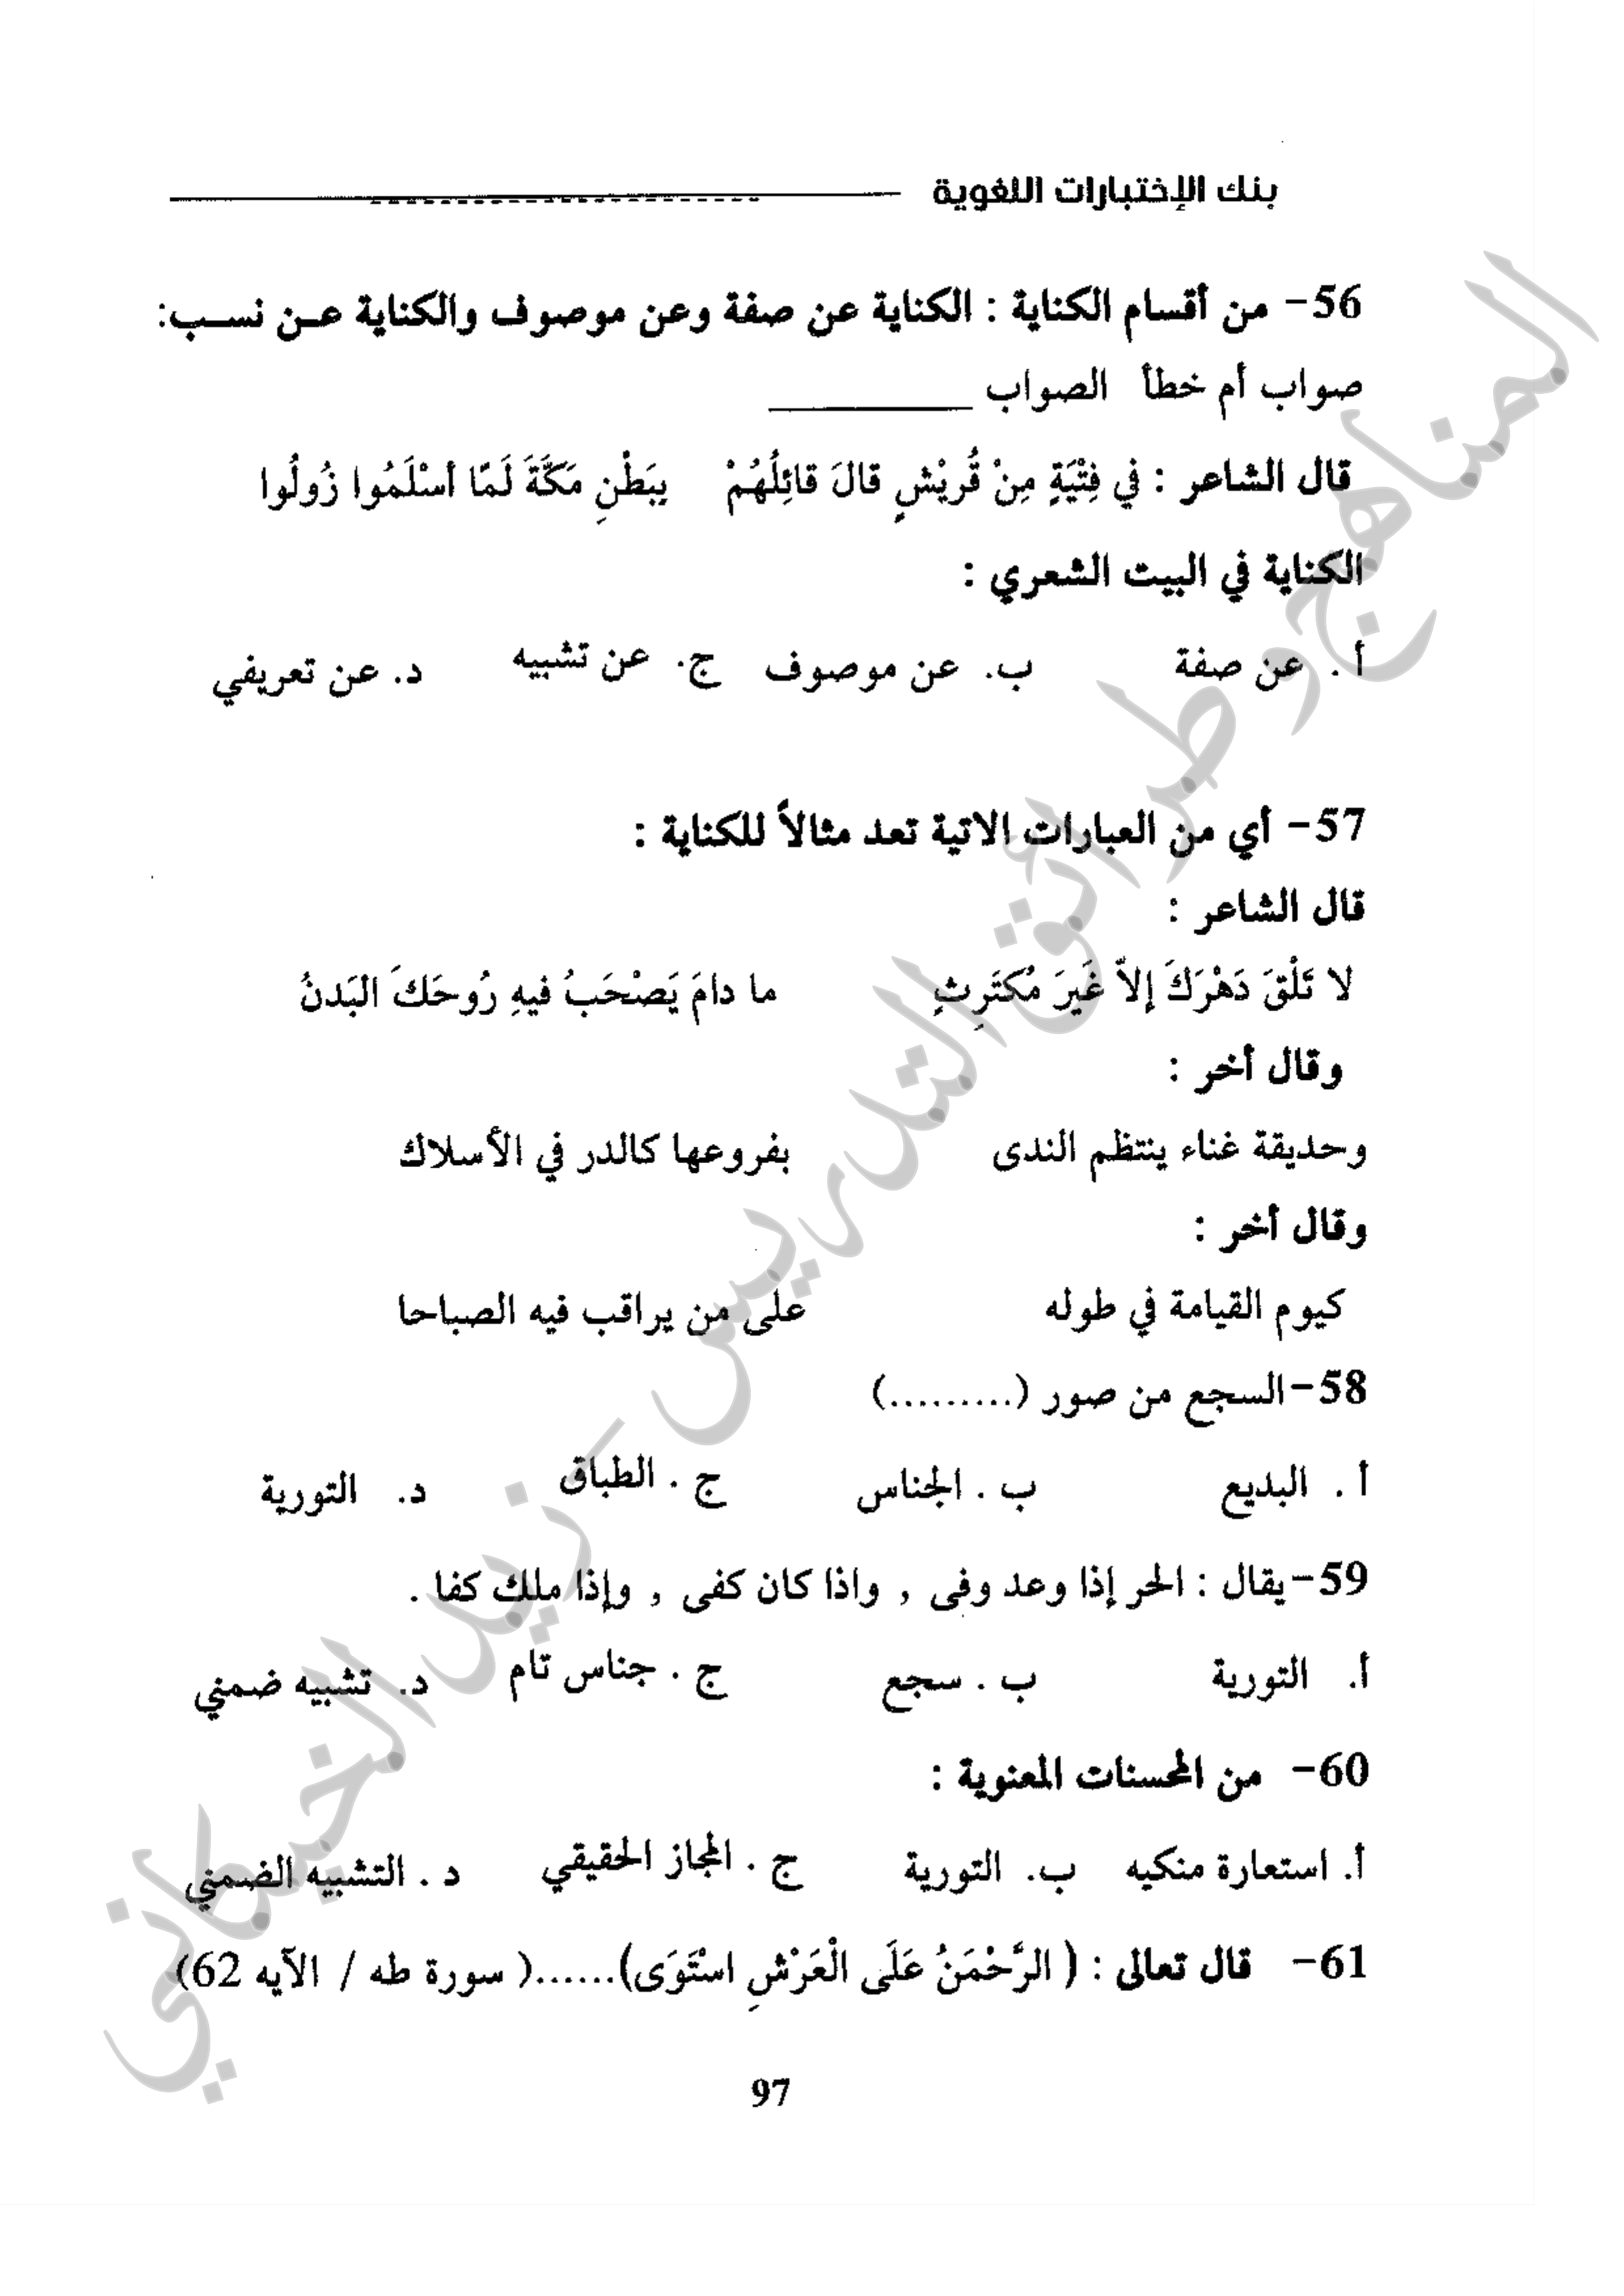 بنك الإختبارات اللغوية
56- من أقسام الكناية : الكناية عن صفة وعن موصوف والكناية عـن نسـب:
صواب أم خطأ الصواب ــــــــــــــ
قال الشاعر : في فِتْيَةٍ مِنْ قُريْشٍ قالَ قائِلُهُمْ بِبَطْنِ مَكَّةَ لَمَّا أسْلَمُوا زُولُوا
الكناية في البيت الشعري :
أ . عن صفة ب. عن موصوف ج. عن تشبيه د. عن تعريفي
57- أي من العبارات الاتية تعد مثالاً للكناية :
قال الشاعر :
لا تَلْقَ دَهْرَكَ إلاّ غَيرَ مُكتَرِثٍ ما دامَ يَصْحَبُ فيهِ رُوحَكَ البَدنُ
وقال أخر :
وحديقة غناء ينتظم الندى بفروعها كالدر في الأسلاك
وقال أخر :
كيوم القيامة في طوله على من يراقب فيه الصباحا
58-السجع من صور (.........)
أ . البديع ب . الجناس ج . الطباق د. التورية
59-يقال : الحر إذا وعد وفى , واذا كان كفى , وإذا ملك كفا .
أ. التورية ب . سجع ج . جناس تام د. تشبيه ضمني
60- من المحسنات المعنوية :
أ. استعارة منكيه ب. التورية ج . المجاز الحقيقي د . التشبيه الضمني
61- قال تعالى : ( الرَّحْمَنُ عَلَى الْعَرْشِ اسْتَوَى)......( سورة طه / الآيه 62)
97
المناهج وطرائق التدريس - زيد الخيكاني